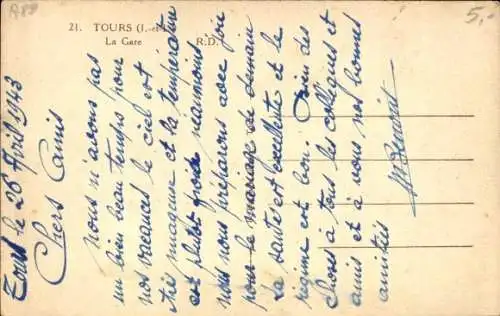 A89
5,-
21. TOURS (I.-et-L.)
La Gare
R.D.
Tours le 26 Avril 1943
Chers Amis
nous n'avons pas
un bien beau temps pour
nos vacances le ciel est
très magenne et la température
est plutot froide néanmoins
nous nous préparons avec joie
pour le mariage de demain
La santé est excellente et le
régime est bon. Bien des
choses à tous les collègues et
amis et à vous nos bonnes
amitiés